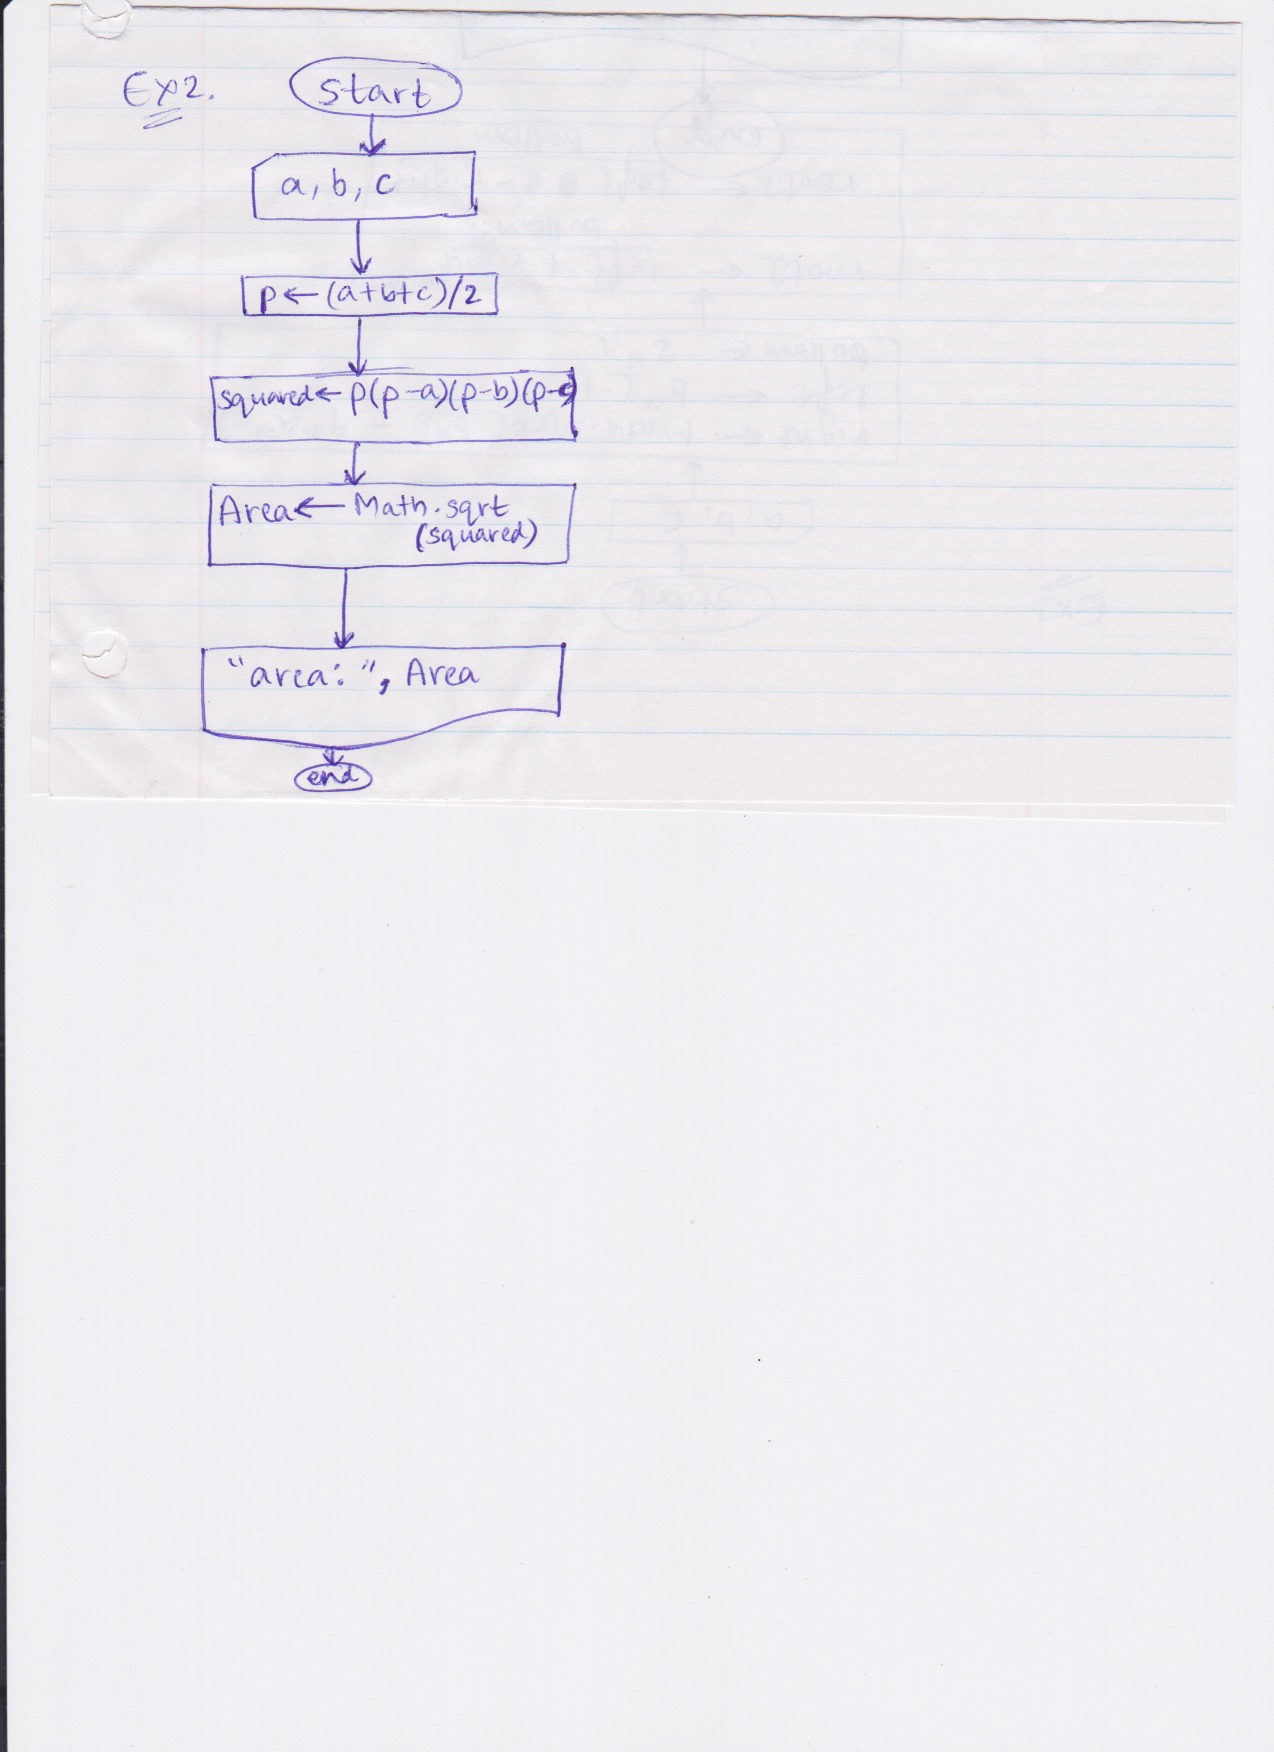 Ex2.
start
a, b, c
p ← (a+b+c)/2
squared ← p(p-a)(p-b)(p-c)
Area ← Math.sqrt
(squared)
"area: ", Area
end